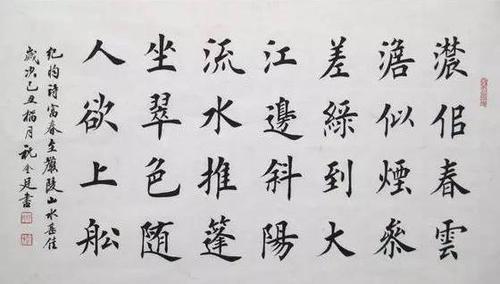 濃佀春雲
澹似煙叅
差綠到大
江邊斜陽
流水推蓬
坐翠色随
人欲上舩
紀昀詩富春至嚴陵山水甚佳
歲次己丑榴月祝書